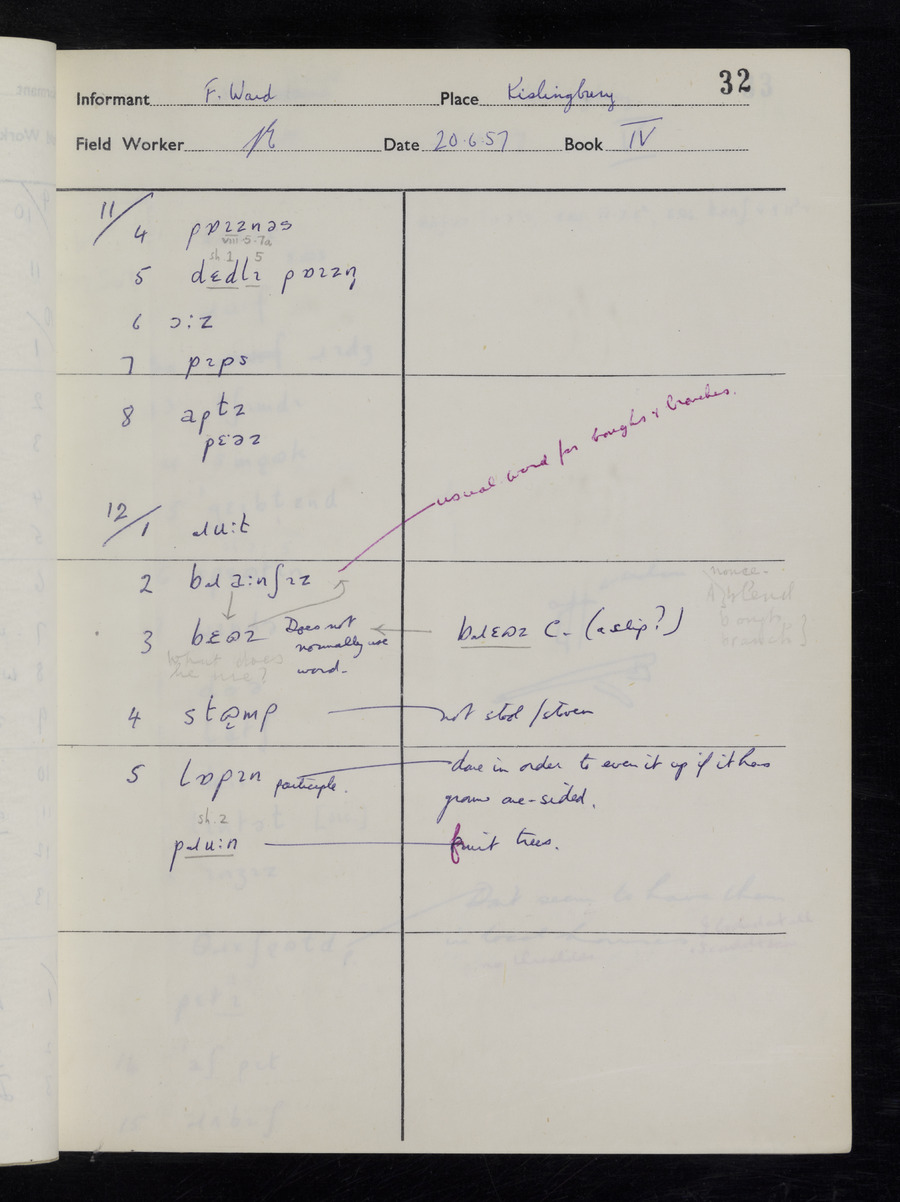 32
Informant F. Ward Place Kislingbury
Field Worker Date 20.6.57 Book IV
11/
4 pɒɪznəs
viii.5.7a
sh 1 5
5 dɛdlɪ pɒɪzn̩
6 ɔ:z
7 pɪps
8 aptz
pɛəz
usual word for boughs & branches.
12/1 ɹu:t
2 bɹa:nʃɪz
3 bɛʊz Does not normally use word.
What does he use?
bɹɛʊz C. (a slip?)
nonse. blend bough, branch
4 stʊmp not stool / stoven
5 lɒpɪn participle.
done in order to even it up if it has
grown one-sided.
sh. 2
pɹu:n fruit trees.